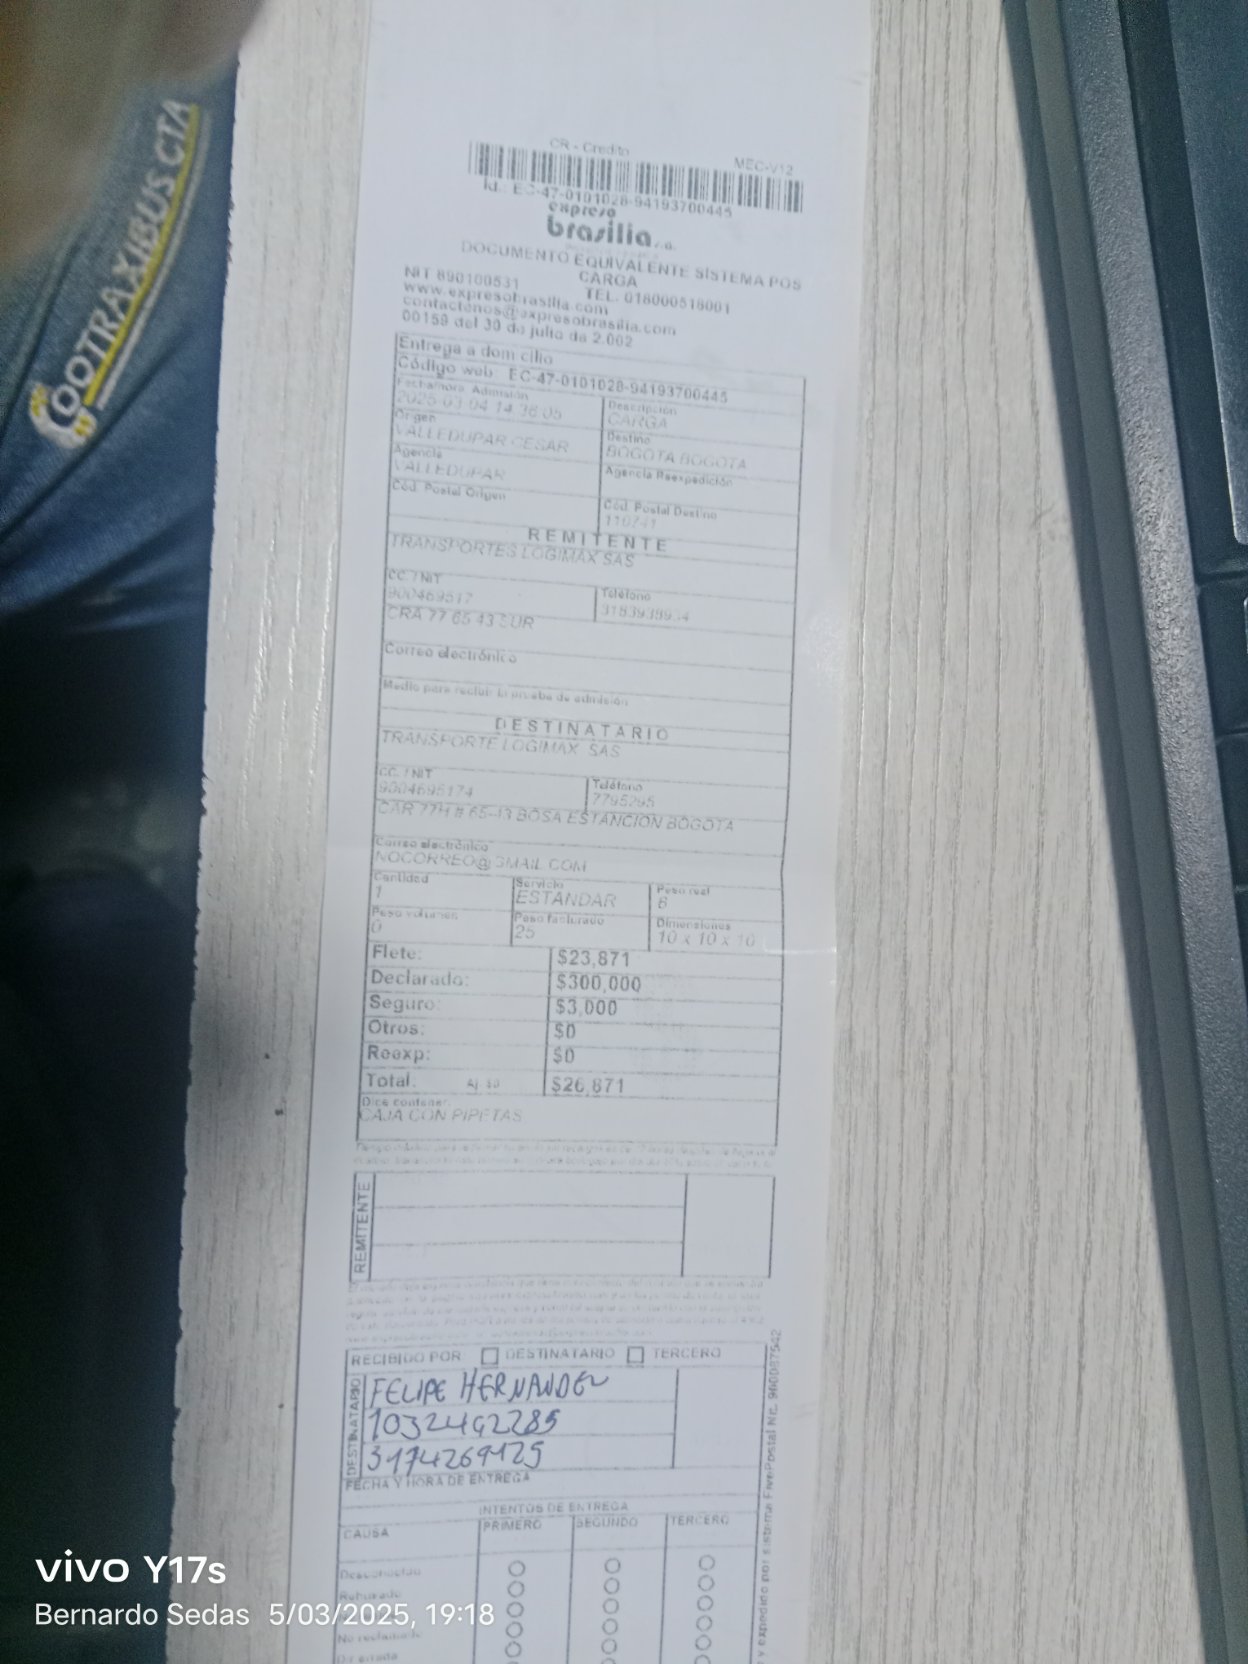 COOTRAXIBUS CTA
CR - Credito MEC-V12
Id.: EC-47-0101028-94193700445
expreso
brasilia s.a.
DOCUMENTO EQUIVALENTE SISTEMA POS
CARGA
NIT 890100531 TEL. 018000518001
www.expresobrasilia.com
contactenos@expresobrasilia.com
00159 del 30 de julio da 2.002
Entrega a domicilio
Código web: EC-47-0101028-94193700445
Fecha/hora Admisión Descripción
2025-03-04 14:36:05 CARGA
Origen Destino
VALLEDUPAR CESAR BOGOTA BOGOTA
Agencia Agencia Reexpedición
VALLEDUPAR
Cód. Postal Origen Cód. Postal Destino
110741
REMITENTE
TRANSPORTES LOGIMAX SAS
CC. / NIT Teléfono
900469517
CRA 77 65 43 SUR
Correo electrónico
Medio para recibir la prueba de admisión
DESTINATARIO
TRANSPORTE LOGIMAX SAS
CC. / NIT Teléfono
9004695174 7795295
CAR 77H # 65-43 BOSA ESTANCION BOGOTA
Correo electrónico
NOCORREO@GMAIL.COM
Cantidad Servicio Peso real
1 ESTANDAR 6
Peso volumen Peso facturado Dimensiones
0 25 10 x 10 x 10
Flete: $23,871
Declarado: $300,000
Seguro: $3,000
Otros: $0
Reexp: $0
Total: Aj. $0 $26,871
Dice contener:
CAJA CON PIPETAS
REMITENTE
RECIBIDO POR DESTINATARIO TERCERO
DESTINATARIO
FELIPE HERNANDEZ
1032492285
3174269125
FECHA Y HORA DE ENTREGA
INTENTOS DE ENTREGA
CAUSA PRIMERO SEGUNDO TERCERO
Desconocido
Rehusado
No reclamado
Dir errada
y expedido por sistema FivePostal Nit. 900087542
vivo Y17s
Bernardo Sedas 5/03/2025, 19:18